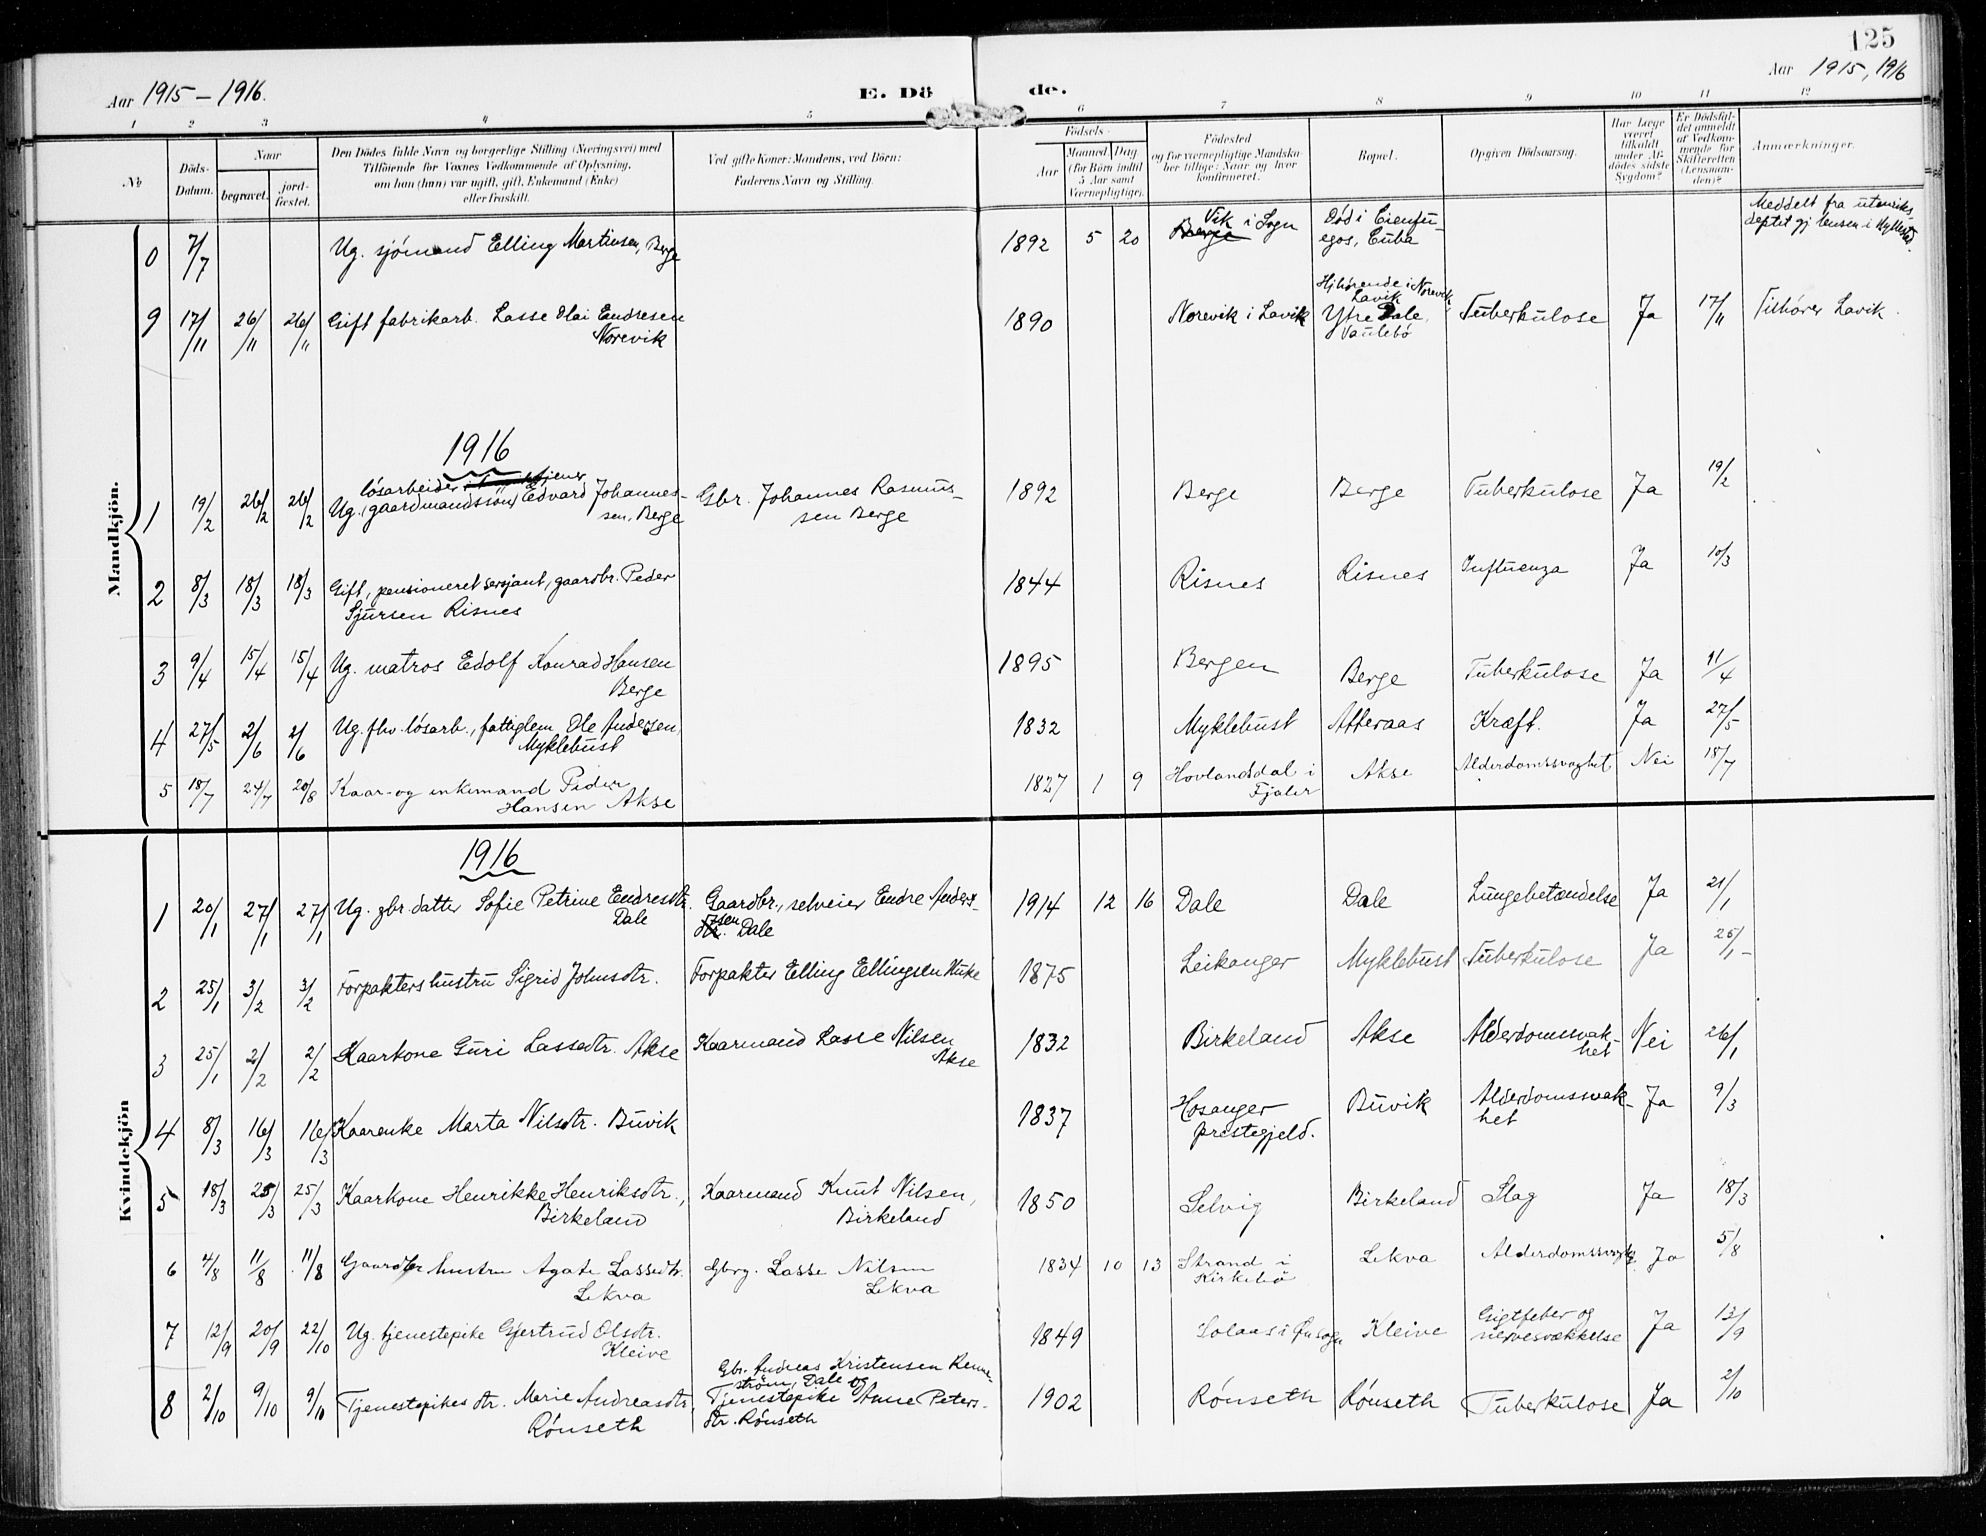 125
Aar 1915 – 1916.
E. Dö
de.
Aar 1915, 1916
1 2 3 4 5 6 7 8 9 10 11 12
No
Döds-
Datum.
Naar
begravet.
jord-
fæstet.
Den Dödes fulde Navn og borgerlige Stilling (Næringsvei) med
Tilföiende for Voxnes Vedkommende af Oplysning,
om han (hun) var ugift, gift, Enkemand (Enke)
eller fraskilt.
Ved gifte Koner: Mandens, ved Börn:
Faderens Navn og Stilling.
Födsels-
Aar
Maaned
Dag
(for Börn indtil
5 Aar samt
Værnepligtige).
Födested
og for værnepligtige Mandska-
ber tillige: Naar og hvor
konfirmeret.
Bopæl.
Opgiven Dödsaarsag.
Har Læge
været
tilkaldt
under Af-
dödes sidste
Sygdom?
Er Dödsfal-
det anmeldt
af Vedkom-
mende for
Skifteretten
(Lensman-
den)?
Anmærkninger.
Mandkjön.
0 7/7 Ug. sjömand Elling Martinsen, Berge 1892 5 20 Berge Vik i Sogn Död i Cienfu-
egos, Cuba Meddelt fra utenriks-
deptet gj lensm i Hyllestad.
9 17/11 26/11 26/11 Gift fabrikarb. Lasse Olai Endresen
Norevik 1890 Norevik i Lavik Hjhörende i Norevik,
Lavik
Ytre Dale
Vaulebö Tuberkulose Ja 17/11 Tilhörer Lavik.
1916
1 19/2 26/2 26/2 lösarbeider
Ug. gaardmandssön, Edvard Johannes-
sen, Berge Gbr. Johannes Rasmus-
sen Berge 1892 Berge Berge Tuberkulose Ja 19/2
2 8/3 18/3 18/3 Gift, pensioneret sersjant, gaardbr. Peder
Sjursen Risnes 1844 Risnes Risnes Influenza Ja 10/3
3 9/4 15/4 15/4 Ug. matros Edolf Konrad Hansen
Berge 1895 Bergen Berge Tuberkulose Ja 11/4
4 27/5 2/6 2/6 Ug. fhv. lösarb., fattiglem Ole Andersen,
Myklebust 1832 Myklebust Atteraas Kræft. Ja 27/5
5 18/7 24/7 20/8 Kaar- og enkemand Peder
Hansen Akse 1827 1 9 Hovlandsdal i
Fjaler Akse Alderdomssvaghet Nei 18/7
Kvindekjön
1916
1 20/1 27/1 27/1 Ug. gbr. datter Sofie Petrine Endresdtr.
Dale Gaardbr., selveier Endre Anders-
sen Dale 1914 12 16 Dale Dale Lungebetændelse Ja 21/1
2 25/1 3/2 3/2 Forpakters hustru Sigrid Johnsdtr. Forpakter Elling Ellingsen Huke 1875 Leikanger Myklebust Tuberkulose Ja 25/1 –
3 25/1 2/2 2/2 Kaarkone Guri Lassedtr. Akse Kaarmand Lasse Nilsen
Akse 1832 Birkeland Akse Alderdomssvak-
het Nei 26/1
4 8/3 16/3 16/3 Kaarenke Marta Nilsdtr. Buvik 1837 Hosanger
prestegjeld. Buvik Alderdomssvak-
het Ja 9/3
5 18/3 25/3 25/3 Kaarkone Henrikke Henriksdtr.,
Birkeland Kaarmand Knut Nilsen,
Birkeland 1850 Selvig Birkeland Slag Ja 18/3
6 4/8 11/8 11/8 Gaardbr hustru Agate Lassedtr.
Lekva Gbrg. Lasse Nilsen
Lekva 1834 10 13 Strand i
Kirkebö Lekva Ja 5/8
7 12/9 20/9 22/10 Ug. tjenestepike Gjertrud Olsdtr.
Kleive 1849 Solaas i Kleive Gigtfeber og
nervesvækkelse Ja 13/9
8 2/10 9/10 9/10 Tjenestepikes dtr. Marie Andreasdtr.
Rönseth Gbr. Andreas Kristensen Renne-
ström, Dale og
Tjenestepike Anne Peters-
dtr. Rönseth 1902 Rönseth Rönseth Tuberkulose Ja 2/10